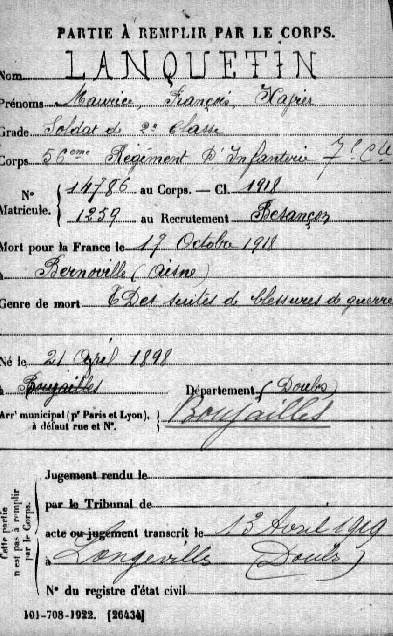 PARTIE À REMPLIR PAR LE CORPS.
Nom LANQUETIN
Prénoms Maurice, François Xavier
Grade Soldat de 2e classe
Corps 56eme Régiment d'Infanterie 7e Cie
N° Matricule. { 14786 au Corps. — Cl. 1918
1259 au Recrutement Besançon
Mort pour la France le 17 Octobre 1918
à Bernoville (Aisne)
Genre de mort Des suites de blessures de guerre
Né le 21 Avril 1898
à Boujailles Département (Doubs)
Arrt municipal (pr Paris et Lyon), à défaut rue et N°. } Boujailles
Cette partie n'est pas à remplir par le Corps.
Jugement rendu le
par le Tribunal de
acte ou jugement transcrit le 13 Avril 1919
à Longeville (Doubs)
N° du registre d'état civil
101-708-1922. [26434]